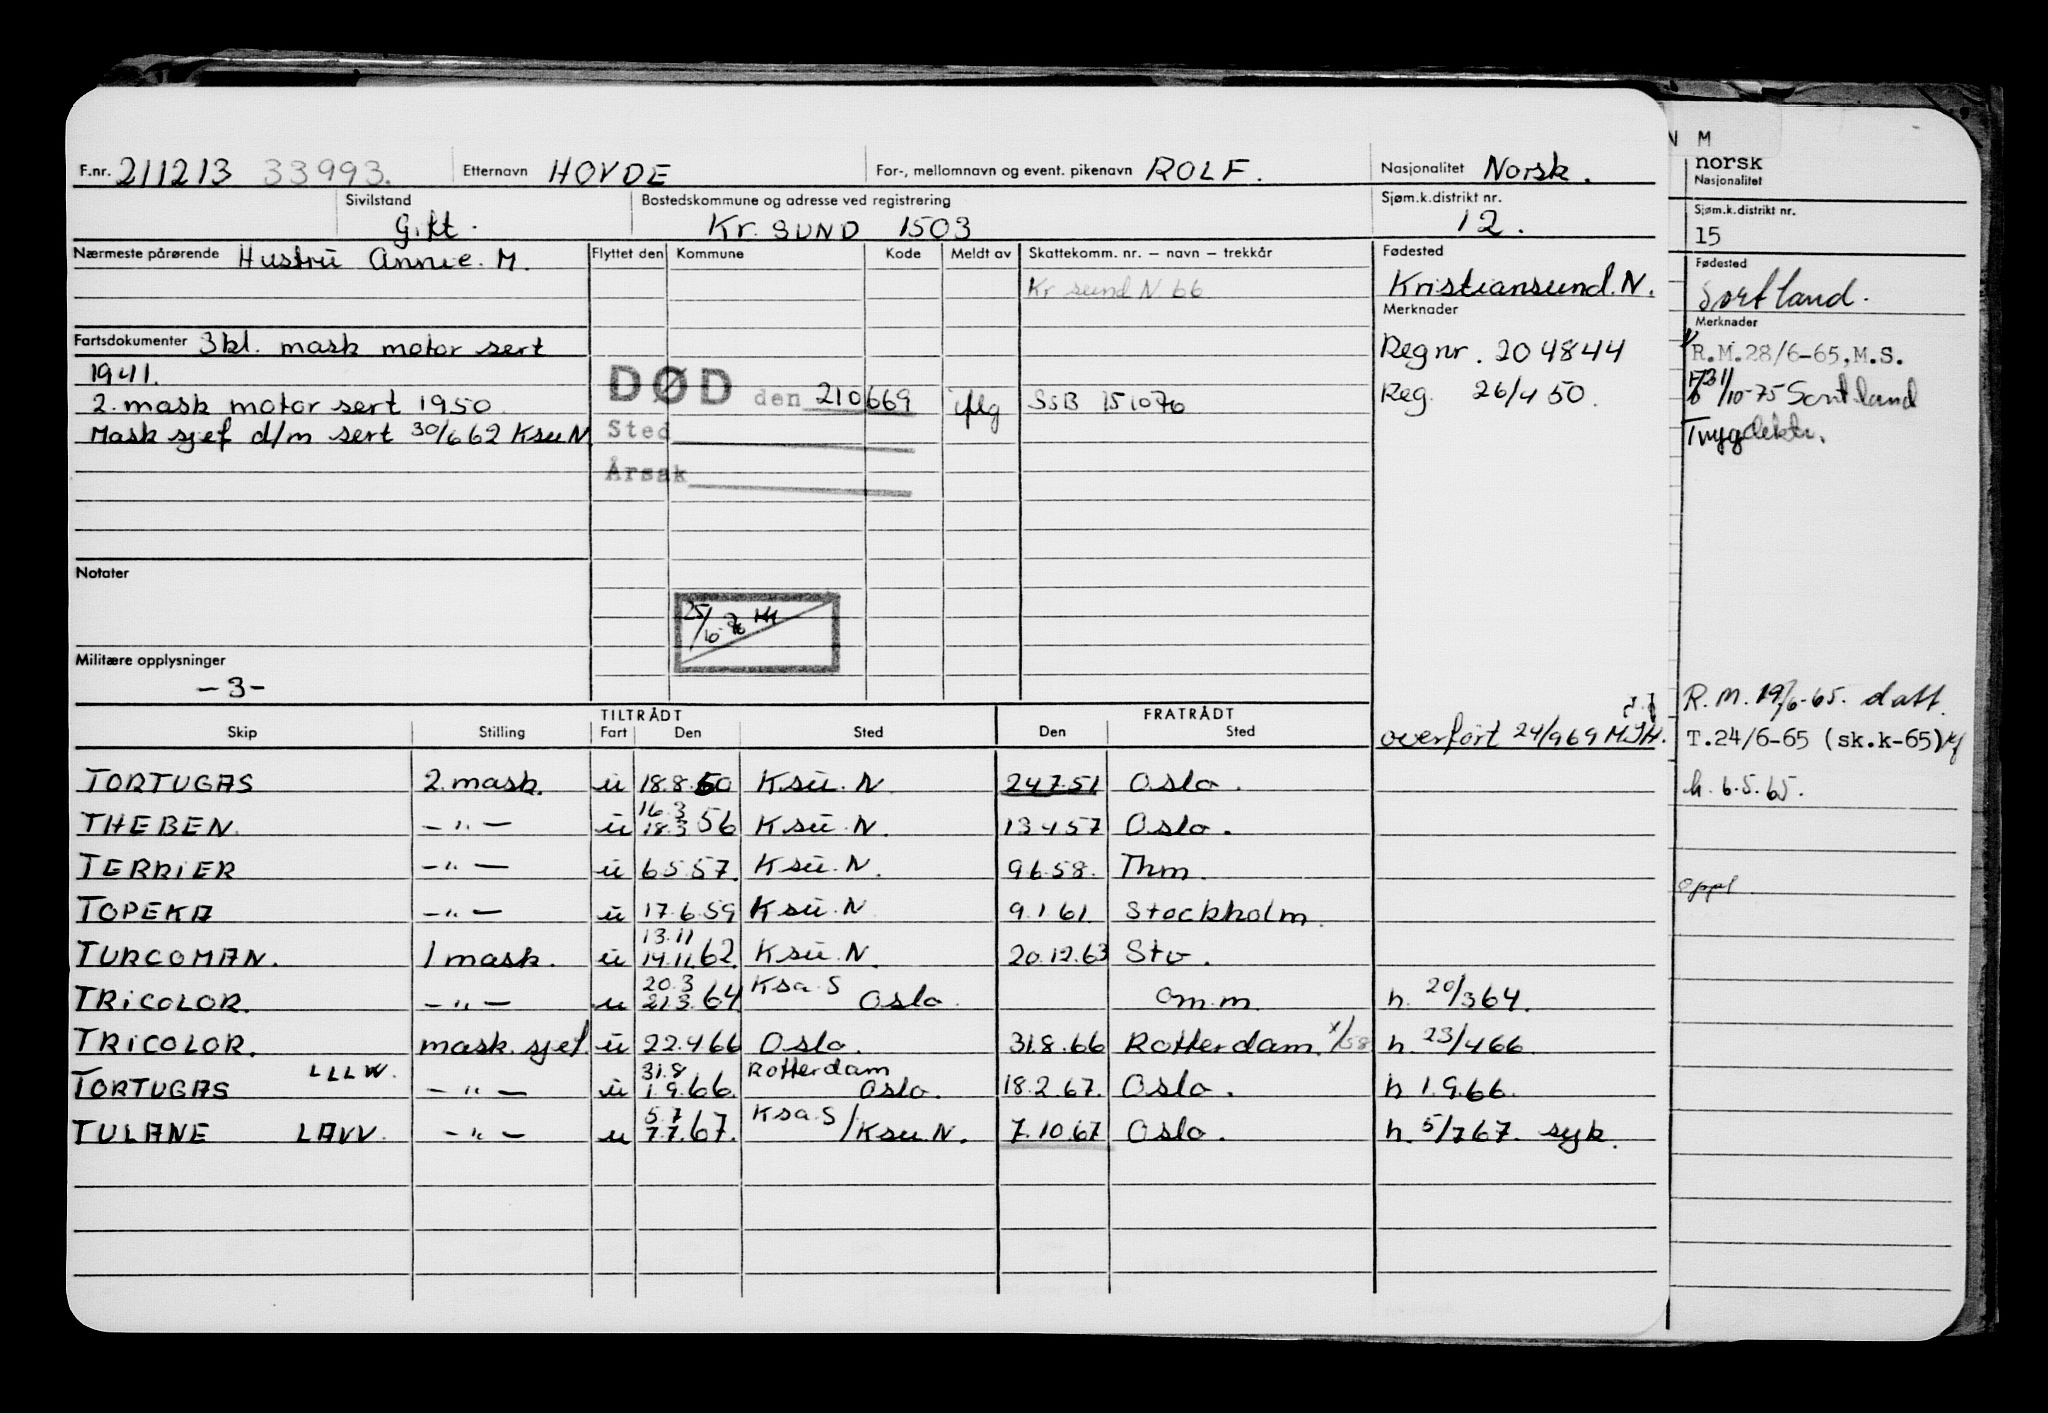 F.nr. 211213 33993. Etternavn HOVDE For-, mellomnavn og event. pikenavn ROLF. Nasjonalitet Norsk.
Sivilstand Gift. Bostedskommune og adresse ved registrering Kr. SUND 1503 Sjøm.k.distrikt nr. 12.
Nærmeste pårørende Hustru Annie. M. Flyttet den Kommune Kode Meldt av Skattekomm. nr. – navn – trekkår Fødested
Kr sund N 66 Kristiansund. N.
Merknader
Fartsdokumenter 3kl. mask motor sert Reg nr. 204844
1941.
2. mask motor sert 1950 DØD den 210669 iflg SSB 151070 Reg. 26/4 50.
Mask sjef d/m sert 30/6 62 Ksu N Sted
Årsak
Notater
25/
Militære opplysninger
-3-
TILTRÅDT FRATRÅDT
Skip Stilling Fart Den Sted Den Sted overført 24/969 MJH.
TORTUGAS 2. mask. u 18.8.50 Ksu. N 247.51 Oslo.
THEBEN. -"- u 16.3 18.3 56 Ksu. N. 13457 Oslo.
TERRIER -"- u 6557. Ksu. N. 96.58. Thm.
TOPEKA -"- u 17.6.59 Ksu. N 9.1.61. Stockholm.
TURCOMAN. 1 mask. u 13.11 14.11.62. Ksu. N. 20.12.63 Stv.
TRICOLOR. -"- u 20.3 21.3.64 Ksa. S Oslo. Om.m. h. 20/364.
TRICOLOR. mask. sjef. u 22.466 Oslo. 31.8.66 Rotterdam. x/58 h. 23/466.
TORTUGAS LLLW. -"- u 31.8 1.9.66. Rotterdam Oslo. 18.2.67. Oslo. h 1.9.66.
TULANE LAVV. -"- u 5.7 7.7.67. Ksa. S/Ksu N. 7.10.67 Oslo. h. 5/767. syk.
N M
norsk
Nasjonalitet
Sjøm.k.distrikt nr.
15
Fødested
Sortland.
Merknader
R.M.28/6-65,M.S.
/10-75 Sortland
R.M. 19/6-65. datt.
T.24/6-65 (sk.k-65)
h. 6.5.65.
oppl.